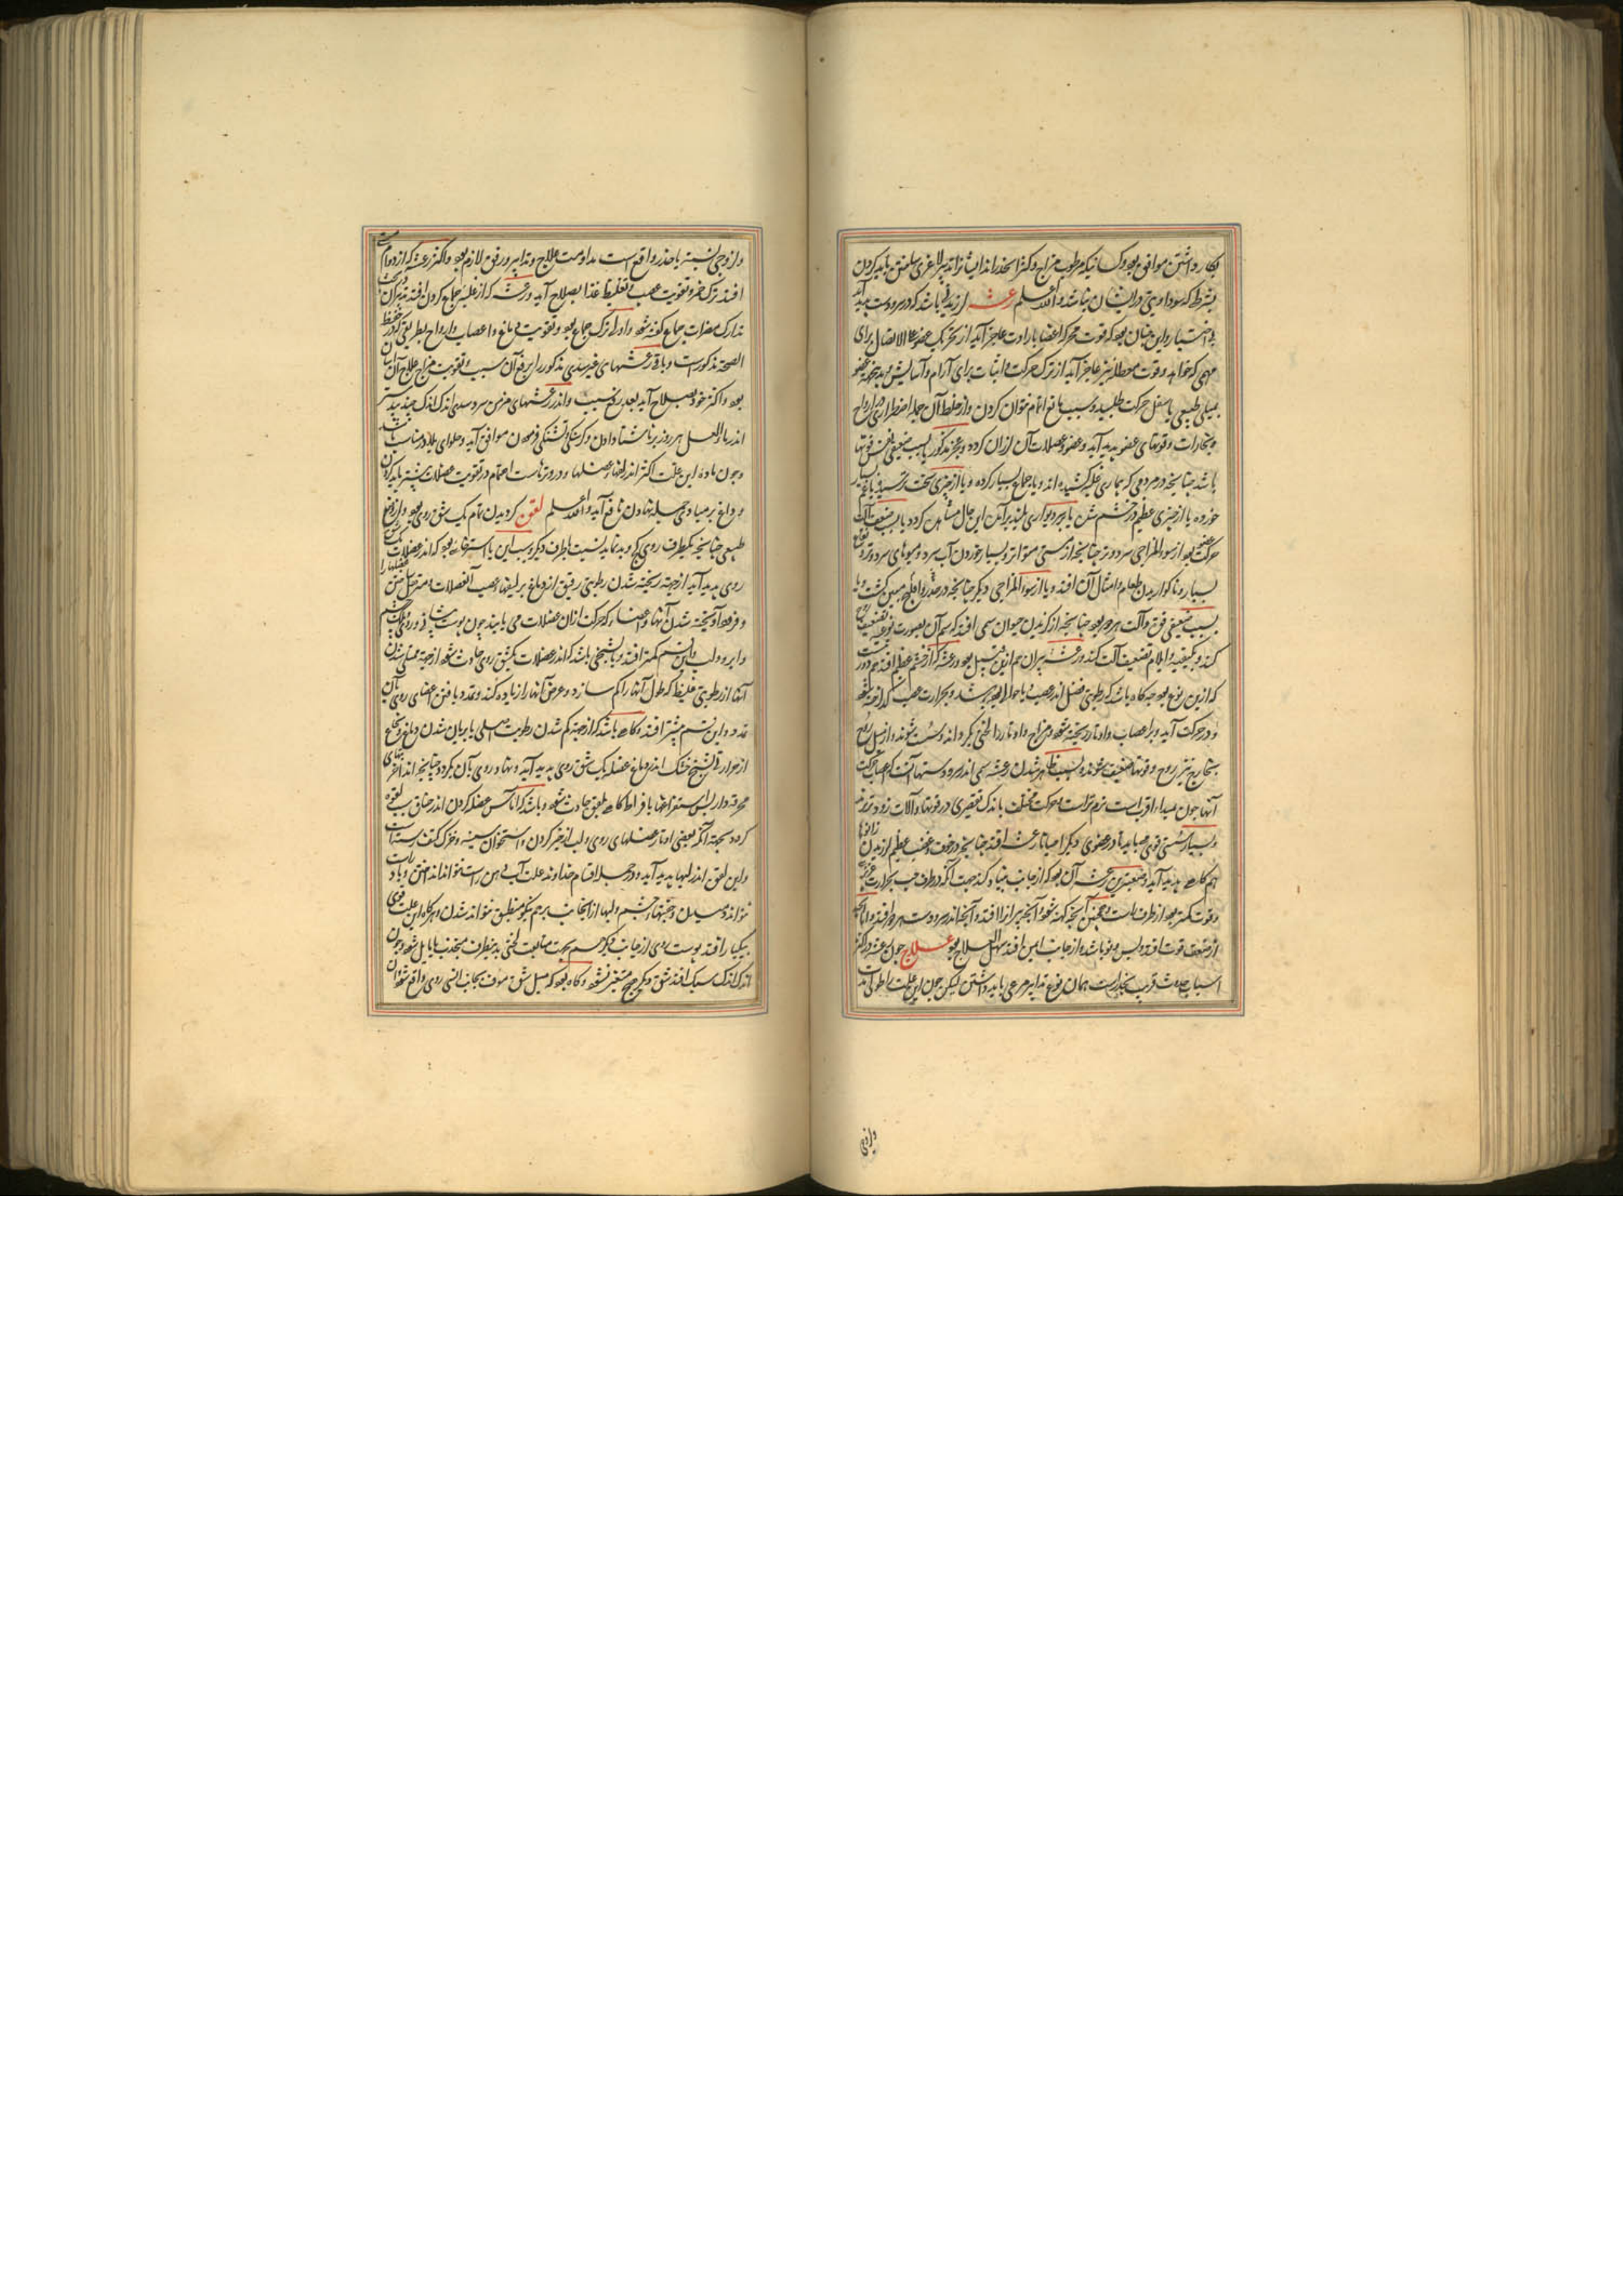 بکار داشتن موافق بود و کسانیکه مرطوب مزاج و کثر الخدر اند ایشانرا تدبیر لاغری سلمتن باید کردن
بشرط که سوداویتی در ایشان نباشد والله اعلم رعشه لرزیدنی باشد که در سر و دست پدید آید
بی اختیار و این چنان بود که قوت محرکه اعضا بارادت عاجز آید از تحریک عضو علی الاتصال برای
مهمی که خواهد و قوت معطله نیز عاجز آید از ترک حرکت و اثبات برای آرام و آسایش و بدین جهة عضو
بمیلی طبیعی باسفل حرکت طلبد و سبب مانع اتمام نتوان کردن و از خلط آن حالها اضطرابی در ارواح
و بخارات و قوتهای عضو پدید آید و عضو و عضلات آن لرزان گردد و عجز مذکور یا بسبب ضعیفی نفس قوتها
باشد چنانچه در مردمی که بیماری غلیظ کشیده اند و یا جماع بسیار کرده و یا از چیزی سخت ترسیده یا غم بسیار
خورده یا از چیزی عظیم در خشم شدن یا بر دیواری بلند برآمدن این حال مشاهده گردد یا بسبب ضعف آلت
حرکت بود از سوء المزاجی سرد و تر چنانچه از مستی متواتر و بسیار خوردن آب سرد و میوهای سرد و تر و نفاخ
بسیار و ناگواریدن طعام و امثال آن افتد و یا از سوء المزاجی دیگر چنانچه در خدر و فالج مبین گشت و یا
بسبب ضعیفی قوت و آلت هر دو بود چنانچه از گزیدن حیوان سمی افتد که سم آن بصورت نوعیه تضعیف روح
کند و بکیفیته و ایلام تضعیف آلت کند و رعشه پیران هم ازین قبیل بود و رعشه که از خشم عظیم افتد هم دور نیست
که ازین نوع بود چه گاه باشد که رطوبتی فضل اندر عصب یا حوالی بود بسبب شدت و حرارت غضب گداخته شود
و در حرکت آید و بر اعصاب و اوتار ریخته شود و مزاج و اوتار را لختی بگرداند و سست شوند و از میل روح
بخارج نیز روح و قوتها ضعیف شوند و سبب ظاهر شدن رعشه سمی اندر سر و دستها آنست که اعصاب حرکت
آنها چون مبداء را قرب است نرم تر است و حرکت مختلف باندک تقصیری در قوتها و آلات زود تر پذیرد
و بسیار سستی قوی میباید تا در عضوی دیگر احیانا رعشه افتد چنانچه در خوف و غضب عظیم لرزیدن زانوها
هم گاهی پدید آید و صعبترین رعشه آن بود که از جانب چپ بنیاد کند جهت آنکه در طرف چپ حرارت غریزی
و قوت کمتر بود از طرف راست و همچنین آنچه کهنه شود و آنچه پیرانرا افتد و آنچه اندر سر و دست هر دو افتد و اما آنچه
از ضعف قوت افتد و پس و نو باشد و از جانب ایمن افتد سهل العلاج بود علاج چون رعشه در اکثر
اسباب حادث قریب بخدر است همان نوع تدابیر مرعی باید داشتن لیکن چون این علت را طولی است
وازوجی
وازوجی نسبت با خدر واقع است مداومت علاج و تدابیر و رفق لازم بود و اکثر رعشه که از دوام مستی
افتد ترک خمر و تقویت عصب و تغلیظ غذا بصلاح آید و رعشه که از غلبه جماع کردن افتد تدبیر آن در بحث
تدارک مضرات جماع گفته شود و اورا ترک جماع بود و تقویت دماغ و اعصاب و ارواح بطریقی که در حفظ
الصحة مذکور است و باقی رعشهای غیر سدی مذکور را برفع آن سبب و تقویت مزاج علاج آن آسان
بود و اکثر خود بصلاح آید بعد رفع سبب و اندر رعشهای مزمن سرد سدی اندک اندک جند بیدستر
اندر ماء العسل هر روز بناشتا دادن و گرسنگی و تشنگی فرمودن موافق آید و حلوای بلادر مناسب باشد
و چون ماده این علت اکثر اندر لیفها و عضلها و در وترهاست اهتمام در تقویت عضلات بیشتر باید کردن
و داغ بر میا و حب سیلها دن نافع آید والله اعلم لقوه گردیدن تمام یک شق روی بود از وضع
طبیعی چنانچه یکطرف روی کج و بد نماید نسبت بطرف دیگر و سبب این یا استرخا بود که اندر عضلات یک شق
روی پدید آید از جهة ریخته شدن رطوبتی رقیق از دماغ بر لیفها و عصب آن عضلات و مسترخی ساختن عضلها را
و فرو آویخته شدن آنها و اعضاء که حرکت ازان عضلات می یابند چون پوست پیشانی و روی و پلک چشم
و ابرو و لب و این قسم کمتر افتد و یا تشنجی باشد که اندر عضلات یک شق روی حادث شود از جهة ممتلی شدن
آنها از رطوبتی غلیظ که طول آنها را کم سازد و عرض آنها را زیاده کند و تمدد یافتن اعضای روی بآن
تمدد و این قسم بیشتر افتد و گاهی باشد که از جهة کم شدن رطوبت اصلی یا بریان شدن دماغ و نخاع
از حرارت تشنج خشک اندر دماغ عضله یک شق روی پدید آید و بهاد روی بآن بگردد چنانچه اندر آخر تبهای
محرقه و از پس استفراغها بافراط گاهی لقوه حادث شود و باشد که آماس عضله گردن اندر خناق سبب لقوه
گردد بجهة آنکه بعضی اوتار عضلهای روی و لب از چنبر گردن و استخوان سینه و خرک کتف رسته است
و این لقوه اندر لبها پدید آید و در جمله اقسام خداوند علت آب دهن راست نتواند انداختن و باد راست
نتواند دمیدن و جفنهاء چشم و لبها از آنجانب بر هم نیکو منطبق نتواند شدن و هرگاه این علت قوی
بیکبار افتد پوست روی از جانب دیگر هم بجهت متابعت لختی بدینطرف منجذب یا مایل شود و چون
اندک اندک سبک افتد شق دیگر هیچ متغیر نشود و گاه بود که میل شق ماوف بجانب انسی روی واقع شود از آن